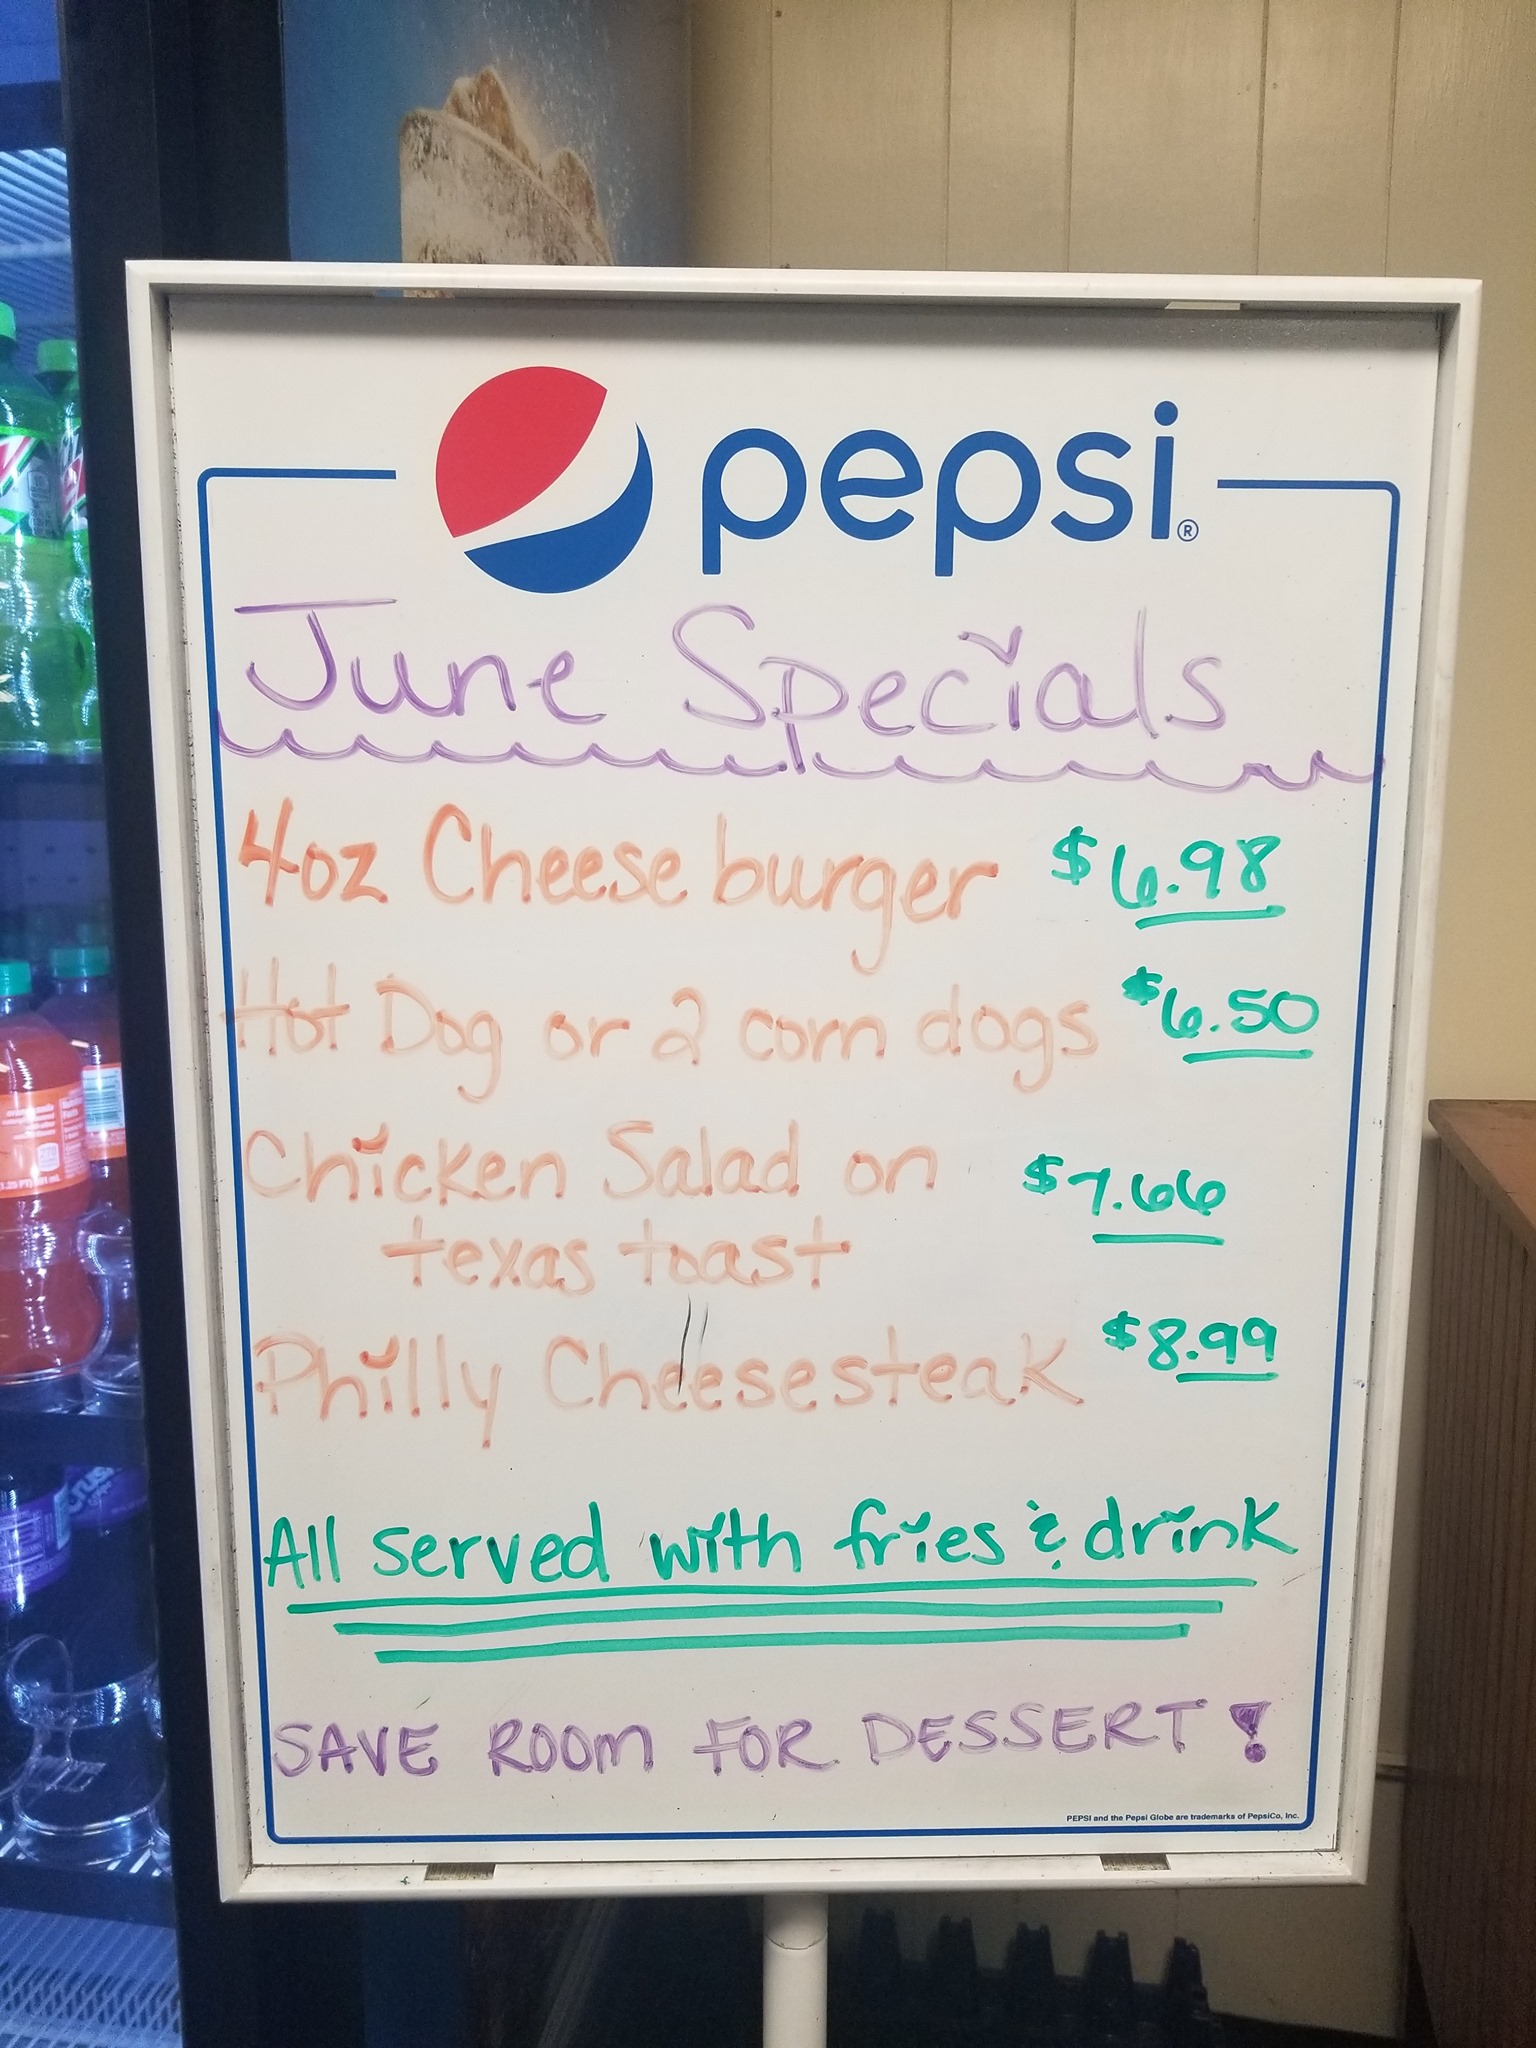 pepsi®
June Specials
4oz Cheeseburger $6.98
Hot Dog or 2 corn dogs $6.50
Chicken Salad on $7.66
texas toast
Philly Cheesesteak $8.99
All served with fries & drink
SAVE ROOM FOR DESSERT!
PEPSI and the Pepsi Globe are trademarks of PepsiCo, Inc.
Crush